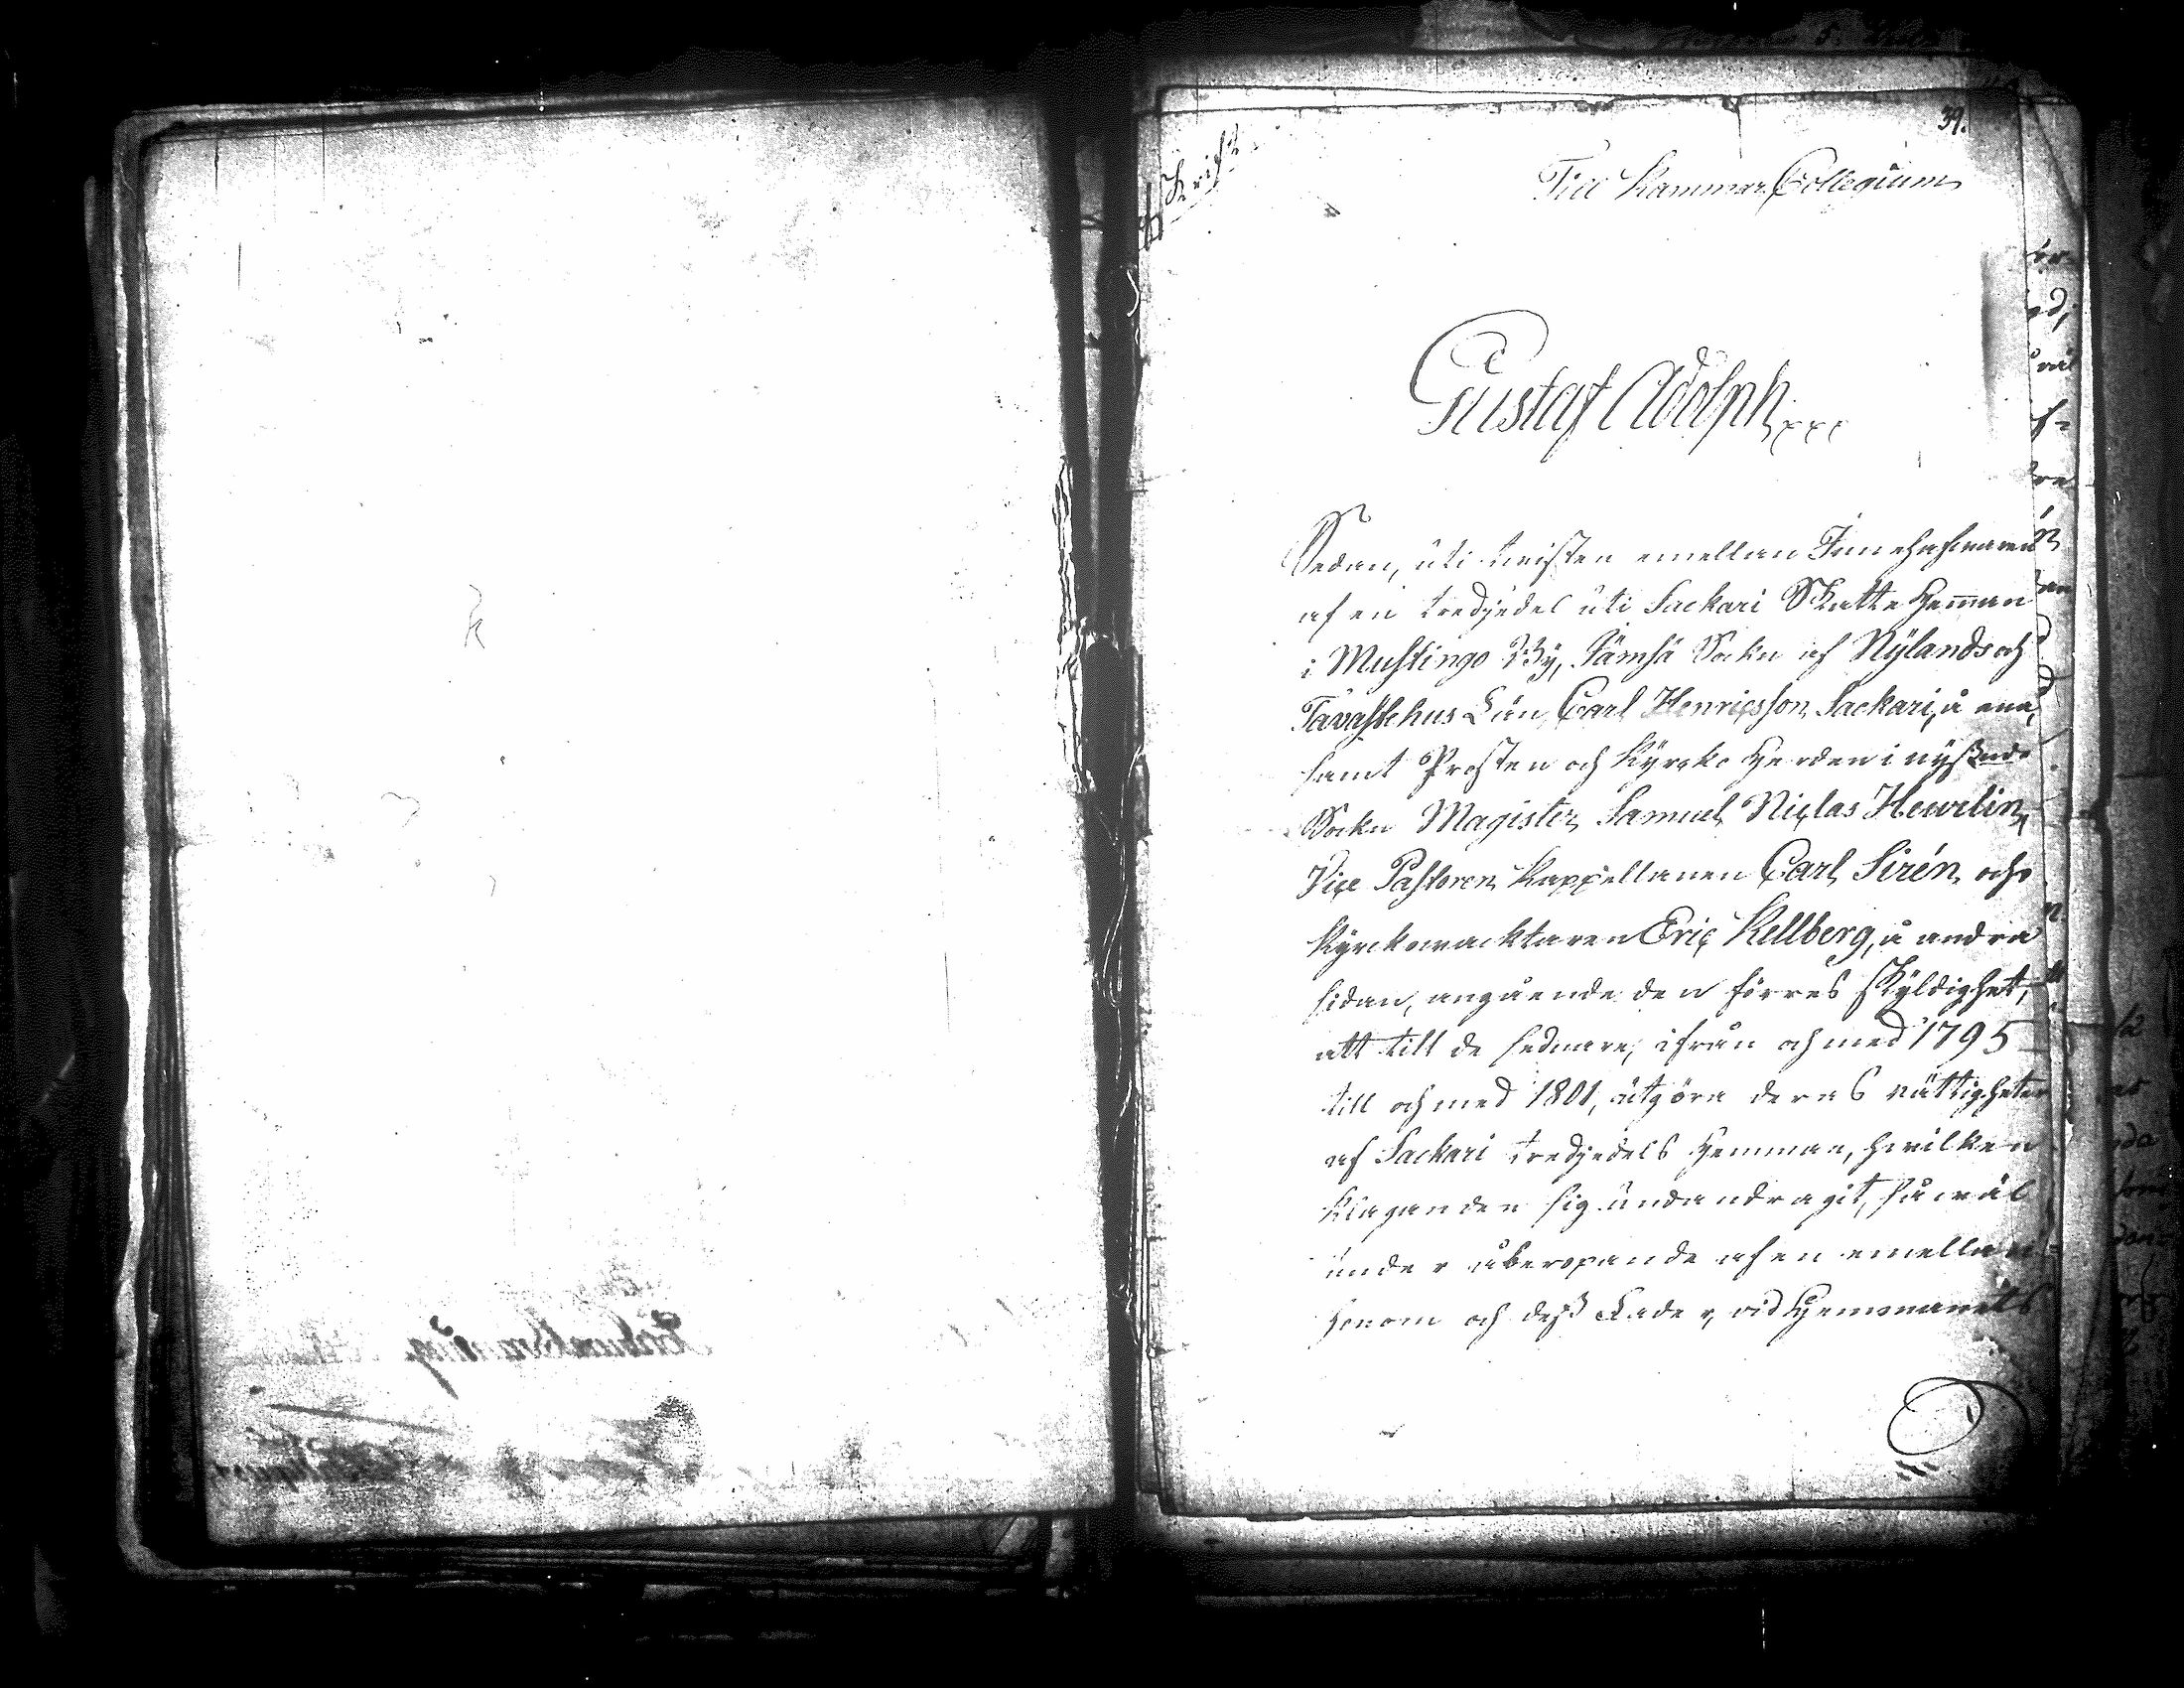 39.
Afskrift.
Till Kammar Collegium
Gustaf Adolph xxx
Sedan, uti twisten emellan Innehafwaren
af en tredjedel uti Sackari Skatte Hemman
i Muhlingo By, Jämsä Sokn af Nylands och
Tavastehus Län, Carl Henricsson Sackari, å ena,
samt Prosten och Kyrko Herden i nyßnde
Sokn Magister Samuel Niclas Heurlin,
Vice Pastoren Kappellanen Carl Sirén och
Kyrckowacktaren Eric Kellberg, å andra
sidan, angående den förres skyldighet,
att till de sednare, ifrån och med 1795
till och med 1801, utgöra deras rättigheter
af Sackari tredjedels Hemman, hwilken
Klaganden sig undandragit, såwäl
under åberopande af en emellan
honom och deß Fader, vid Hemmanets